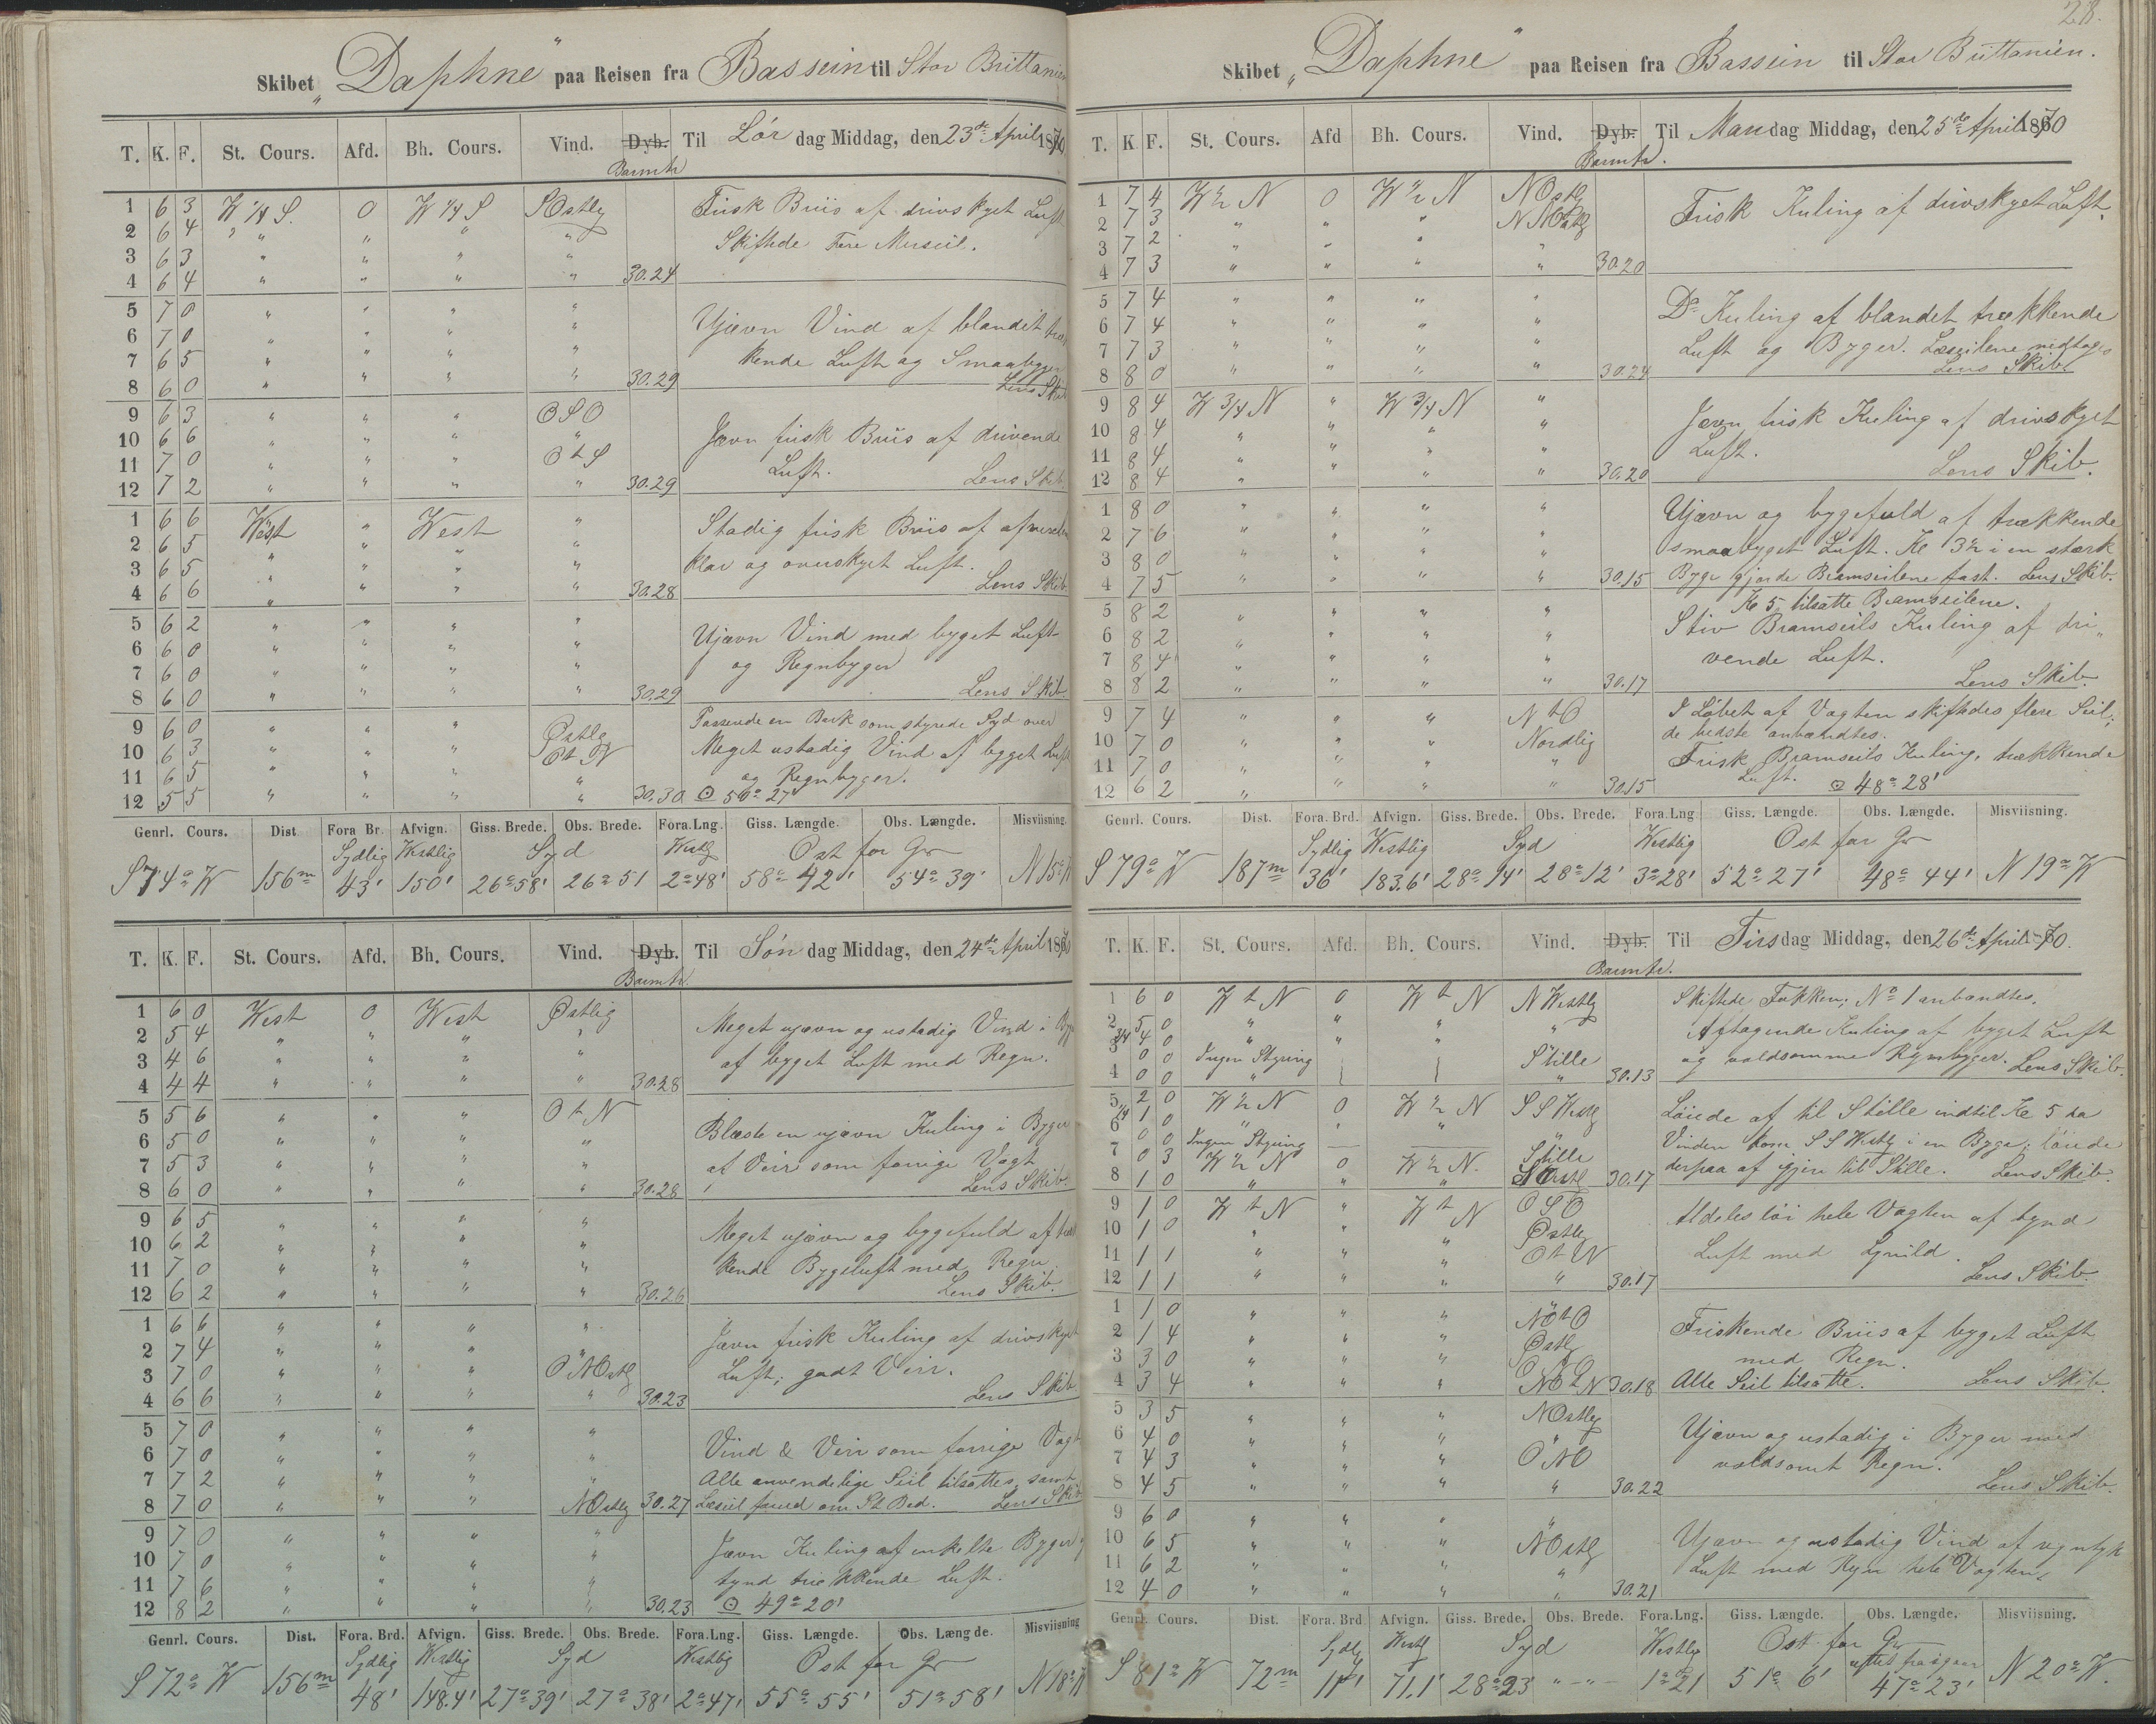 Skibet „Daphne“ paa Reisen fra Bassein til Stor Brittanien
T. K. F. St. Cours. Afd. Bh. Cours. Vind. Dyb. Barmtr Til Lör dag Middag, den 23de April 1870
1 6 3 W 1/4 S. 0 W 1/4 S SOstlg Frisk Briis af drivskyet Luft
2 6 4 " " " " Skiftede Fore Merseil.
3 6 3 " " " "
4 6 4 " " " " 30.24
5 7 0 " " " "
6 7 0 " " " " Ujævn Vind af blandet træk
7 6 5 " " " " kende Luft og Smaabyger
8 6 0 " " " " 30.29 Lens Skib
9 6 3 " " " OSO
10 6 6 " " " " Jævn frisk Briis af drivende
11 7 0 " " " O t S Luft.
12 7 2 " " " " 30.29 Lens Skib
1 6 6 West " West " Stadig frisk Briis af afvexlen
2 6 5 " " " "
3 6 5 " " " " klar og overskyet Luft.
4 6 6 " " " " 30.28 Lens Skib.
5 6 2 " " " "
6 6 0 " " " " Ujævn Vind med byget Luft
7 6 0 " " " " og Regnbyger
8 6 0 " " " " 30.29 Lens Skib
9 6 0 " " " Østlg Passerede en Bark som styrede Syd over
10 6 3 " " " Ot N Meget ustadig Vind af bygget Luft
11 6 5 " " " " og Regnbyger.
12 5 5 " " " " 30.30 ⊙ 50° 27'
Genrl. Cours. Dist. Fora Br. Afvign. Giss. Brede. Obs. Brede. Fora. Lng. Giss. Længde. Obs. Længde. Misviisning.
Sydlig Westlig Syd Westlg Ost for Gr
S 74° W 156m 43' 150' 26° 58' 26° 51 2° 48' 58° 42' 54° 39' N 15° W
T. K. F. St. Cours. Afd. Bh. Cours. Vind. Dyb. Barmtr. Til Sön dag Middag, den 24de April 1870
1 6 0 West 0 West Østlig
2 5 4 " " " " Meget ujævn og ustadig Vind i Byger
3 4 6 " " " " af byget Luft med Regn.
4 4 4 " " " " 30.28
5 5 6 " " " O t N
6 5 0 " " " " Blæste en ujævn Kuling i Byger
7 5 3 " " " " af Veir som forrige Vagt
8 6 0 " " " " 30.28 Lens Skib.
9 6 5 " " " "
10 6 2 " " " " Meget ujævn og bygefuld af træk
11 7 0 " " " " kende Bygeluft med Regn.
12 6 2 " " " " 30.26 Lens Skib.
1 6 6 " " " "
2 7 4 " " " " Jævn frisk Kuling af drivskyet
3 7 0 " " " ONOstlg Luft; godt Veir.
4 6 6 " " " " 30.23 Lens Skib
5 7 0 " " " "
6 7 0 " " " " Vind & Veir som forrige Vagt
7 7 2 " " " " Alle anvendelige Seil tilsattes, samt
8 7 0 " " " NOstlg 30.27 Læseil forud om St Bd. Lens Skib
9 7 0 " " " "
10 7 0 " " " " Jævn Kuling af enkelte Byger og
11 7 6 " " " " tynd trækkende Luft.
12 8 2 " " " " 30.23 ⊙ 49° 20'
Genrl. Cours. Dist. Fora. Brd. Afvign. Giss. Brede. Obs. Brede. Fora. Lng. Giss. Længde. Obs. Længde. Misviisning
Sydlig Westlig Syd Westlig Ost for Gr
S 72° W 156m 48' 148.4' 27° 39' 27° 38' 2° 47' 55° 55' 51° 58' N 18° W
28.
Skibet „Daphne“ paa Reisen fra Bassein til Stor Brittanien.
T. K. F. St. Cours. Afd Bh. Cours. Vind. Dyb. Barmtr. Til Man dag Middag, den 25de April 1870
1 7 4 W ½ N 0 W ½ N NOstlg
2 7 3 " " " NNOstlg Frisk Kuling af drivskyet Luft.
3 7 2 " " " "
4 7 3 " " " " 30.20
5 7 4 " " " "
6 7 4 " " " " Do Kuling af blandet trækkende
7 7 3 " " " " Luft og Byger. Læseilene nedtoges
8 8 0 " " " " 30.24 Lens Skib.
9 8 4 W 3/4 N " W 3/4 N "
10 8 4 " " " " Jævn frisk Kuling af drivskyet
11 8 4 " " " " Luft.
12 8 4 " " " " 30.20 Lens Skib.
1 8 0 " " " "
2 7 6 " " " " Ujævn og bygefuld af trækkende
3 8 0 " " " " smaabyget Luft. Kl 3½ i en stærk
4 7 5 " " " " 30.15 Byge gjorde Bramseilene fast. Lens Skib.
5 8 2 " " " " Kl 5 tilsatte Bramseilene.
6 8 2 " " " " Stiv Bramseils Kuling af dri„
7 8 4 " " " " vende Luft.
8 8 2 " " " " 30.17 Lens Skib.
9 7 4 " " " N t O I Løbet af Vagten skiftedes flere Seil;
10 7 0 " " " Nordlig de bedste anbændtes.
11 7 0 " " " " Frisk Bramseils Kuling, trækkende
12 6 2 " " " " 30.15 Luft. ⊙ 48° 28'
Genrl. Cours. Dist. Fora. Brd. Afvign. Giss. Brede. Obs. Brede. Fora. Lng Giss. Længde. Obs. Længde. Misviisning.
Sydlig Westlig Syd Westlig Ost for Gr
S 79° W 187m 36' 183.6' 28° 14' 28° 12' 3° 28' 52° 27' 48° 44' N 19° W
T. K. F. St. Cours. Afd. Bh. Cours. Vind. Dyb. Barmtr. Til Tirs dag Middag, den 26de April 70.
1 6 0 W t N 0 W t N NWestlg Skiftede Fokken; No 1 anbændtes.
2 5 0 " " " " Aftagende Kuling af byget Luft
3/4 4 0 " " "
3 0 0 Ingen Styring Stille og voldsomme Regnbyger. Lens Skib.
4 0 0 " " 30.13
5 2 0 W ½ N 0 W ½ N SSWestlg Løiede af til Stille indtil Kl 5 da
1/4 1 0 " " "
6 0 0 " Vinden kom SSWestlg i en Byge; löiede
7 0 3 Ingen Styring Stille
W ½ N 0 W ½ N.
8 1 0 " " " 30.17 derpaa af igjen til Stille. Lens Skib.
9 1 0 W t N " W t N OSO Aldeles löi hele Vagten af tynd
10 1 0 " " " Østlg
11 1 1 " " " Ot N Luft med Lynild.
12 1 1 " " " " 30.17 Lens Skib.
1 1 0 " " " NOtO
2 1 4 " " " Østlg Friskende Briis af byget Luft
3 3 0 " " " ONO med Regn.
4 3 4 " " " NOtN 30.18 Alle Seil tilsatte. Lens Skib.
5 3 5 " " " NOstlg
6 4 0 " " " " Ujævn og ustadig i Byger med
7 4 3 " " " ONO voldsomt Regn.
8 4 5 " " " " 30.22 Lens Skib.
9 6 0 " " " "
10 6 5 " " " NOstlg Ujævn og ustadig Vind af regntyk
11 6 2 " " " " Luft med Regn hele Vagten.
12 4 0 " " " " 30.21
Genrl. Cours. Dist. Fora. Brd Afvign. Giss. Brede. Obs. Brede. Fora. Lng. Giss. Længde. Obs. Længde. Misviisning.
Sydlg Westlg Syd Westlg Ost for Gr
S 81° W 72m 11' 71.1' 28° 23 " - " - 1° 21 51° 6' 47° 23' N 20° W.